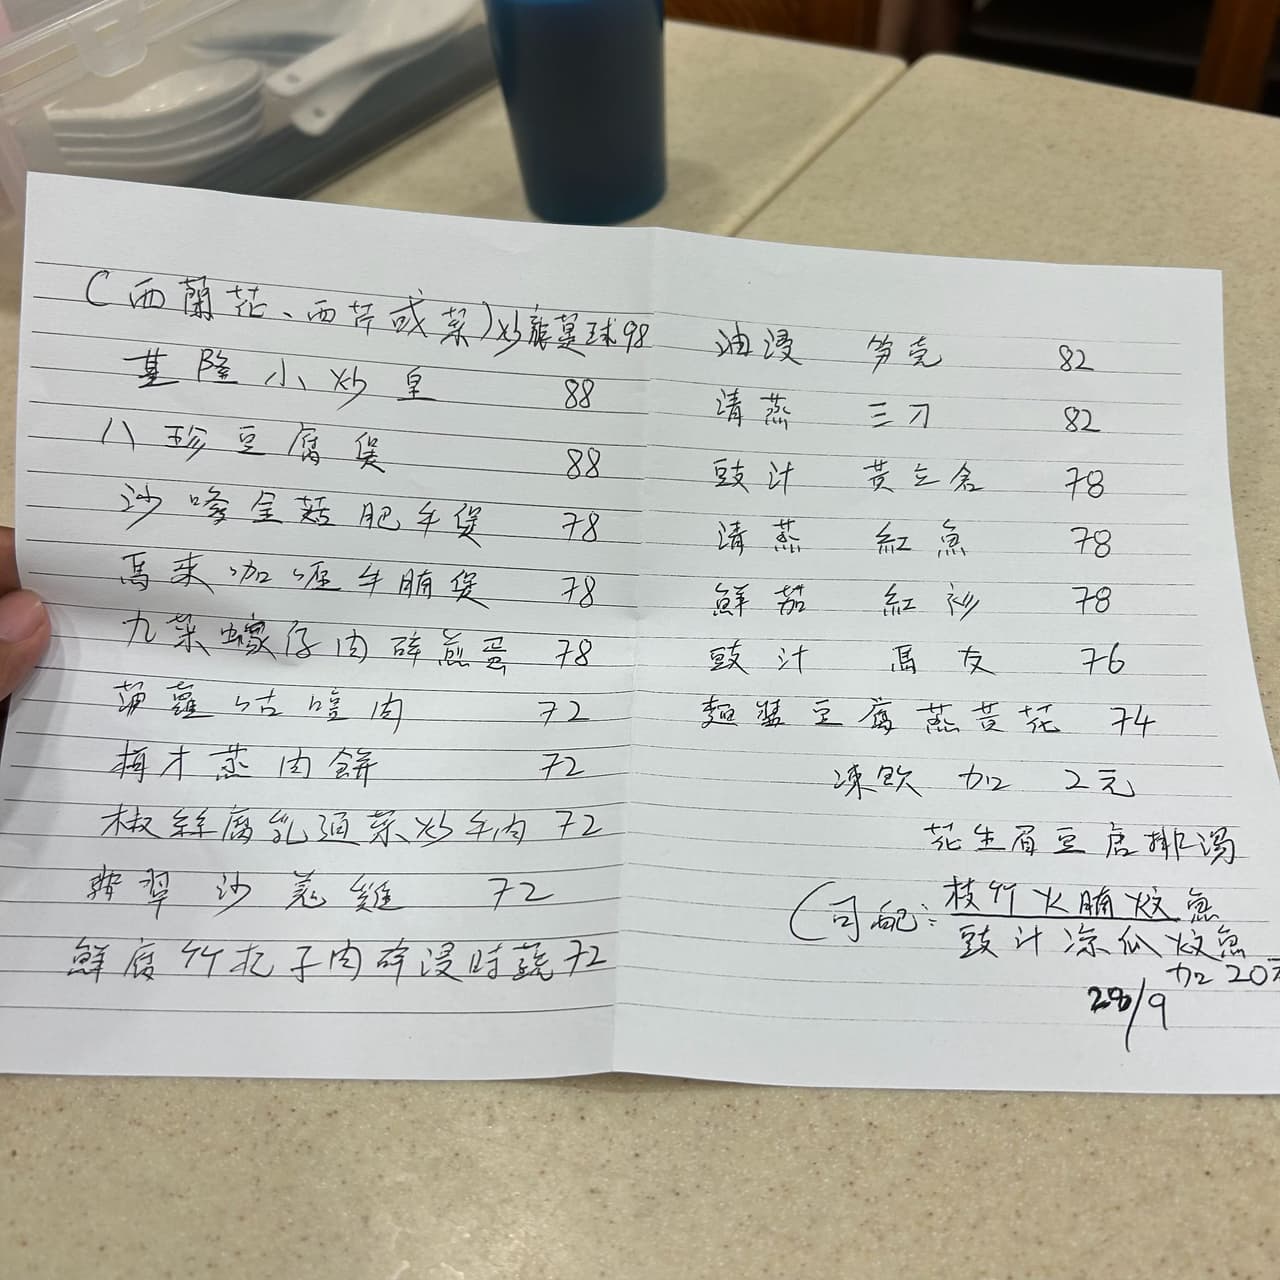 (西蘭花、西芹或菜)炒龍躉球98
基隆小炒皇 88
八珍豆腐煲 88
沙嗲金菇肥牛煲 78
馬來咖喱牛腩煲 78
九菜蠔仔肉碎煎蛋 78
菠蘿咕噜肉 72
梅才蒸肉餅 72
椒絲腐乳通菜炒牛肉 72
翡翠沙羗雞 72
鮮腐竹杞子肉碎浸時蔬 72
油浸 笋壳 82
清蒸 三刀 82
豉汁 黄立倉 78
清蒸 紅魚 78
鮮茄 紅衫 78
豉汁 馬友 76
麵醬豆腐蒸黄花 74
凍飲 加 2元
花生眉豆唐排湯
(可配: 枝竹火腩炆魚
豉汁凉瓜炆魚
加20元
28/9